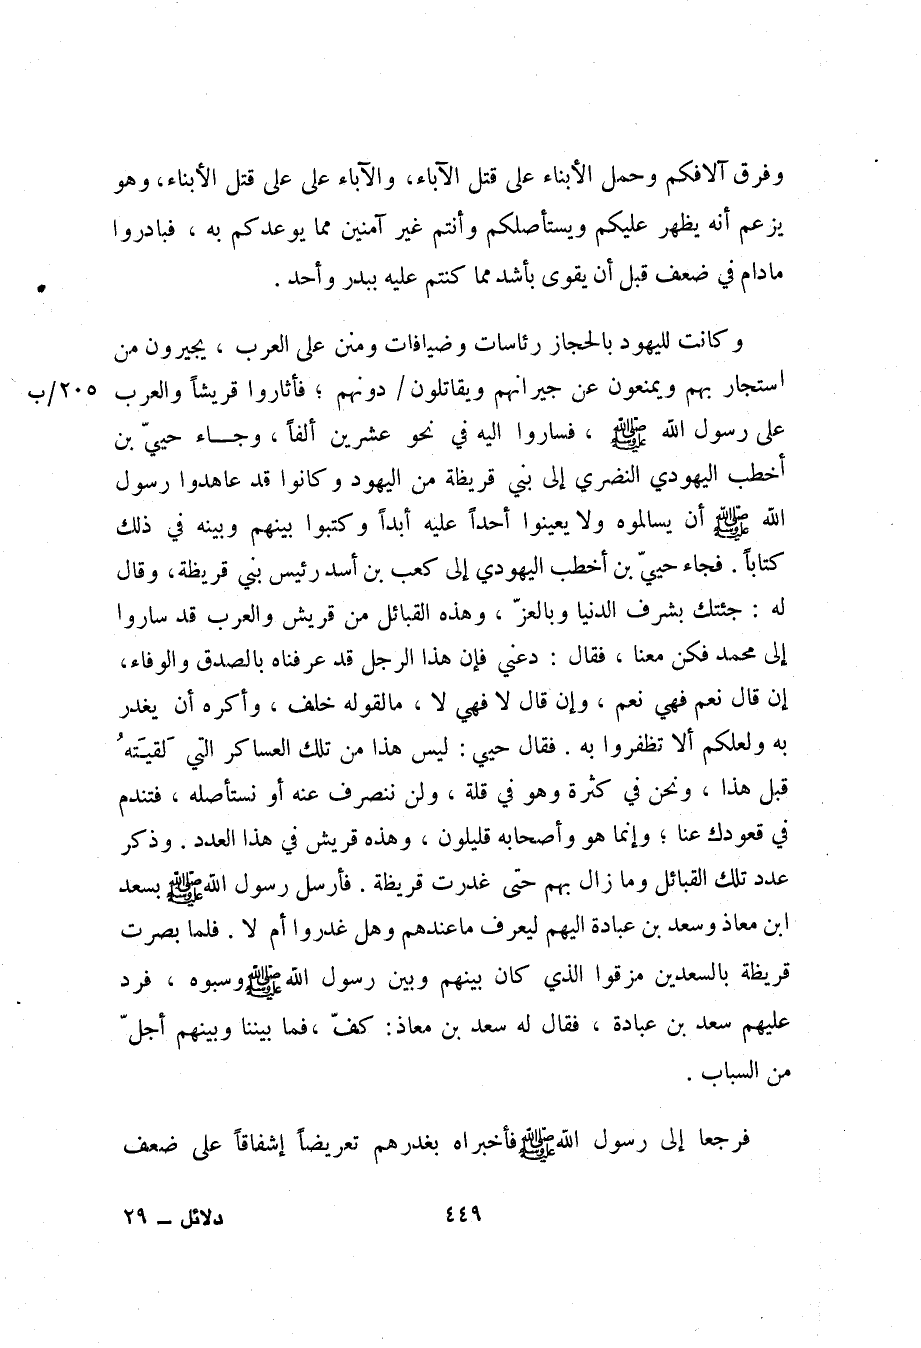 وفرق آلافكم وحمل الأبناء على قتل الآباء، والآباء على على قتل الأبناء، وهو
يزعم أنه يظهر عليكم ويستأصلكم وأنتم غير آمنين مما يوعدكم به ، فبادروا
مادام في ضعف قبل أن يقوى بأشد مما كنتم عليه ببدر وأحد .
وكانت لليهود بالحجاز رئاسات وضيافات ومنن على العرب ، يجيرون من
استجار بهم ويمنعون عن جيرانهم ويقاتلون/ دونهم ؛ فأثاروا قريشاً والعرب ٢٠٥/ب
على رسول الله ﷺ ، فساروا اليه في نحو عشرين ألفاً ، وجـــاء حييّ بن
أخطب اليهودي النضري إلى بني قريظة من اليهود وكانوا قد عاهدوا رسول
الله ﷺ أن يسالموه ولا يعينوا أحداً عليه أبداً وكتبوا بينهم وبينه في ذلك
كتاباً . فجاء حييّ بن أخطب اليهودي إلى كعب بن أسد رئيس بني قريظة، وقال
له : جئتك بشرف الدنيا وبالعزّ ، وهذه القبائل من قريش والعرب قد ساروا
إلى محمد فكن معنا ، فقال : دعني فإن هذا الرجل قد عرفناه بالصدق والوفاء،
إن قال نعم فهي نعم ، وإن قال لا فهي لا ، مالقوله خلف ، وأكره أن يغدر
به ولعلكم ألا تظفروا به . فقال حيي : ليس هذا من تلك العساكر التي لَقيَتهُ
قبل هذا ، ونحن في كثرة وهو في قلة ، ولن ننصرف عنه أو نستأصله ، فتندم
في قعودك عنا ؛ وإنما هو وأصحابه قليلون ، وهذه قريش في هذا العدد . وذكر
عدد تلك القبائل وما زال بهم حتى غدرت قريظة . فأرسل رسول الله ﷺ بسعد
ابن معاذ وسعد بن عبادة اليهم ليعرف ماعندهم وهل غدروا أم لا . فلما بصرت
قريظة بالسعدين مزقوا الذي كان بينهم وبين رسول الله ﷺ وسبوه ، فرد
عليهم سعد بن عبادة ، فقال له سعد بن معاذ: كفّ ،فما بيننا وبينهم أجلّ
من السباب .
فرجعا إلى رسول الله ﷺ فأخبراه بغدرهم تعريضاً إشفاقاً على ضعف
٤٤٩
دلائل ـ ٢٩